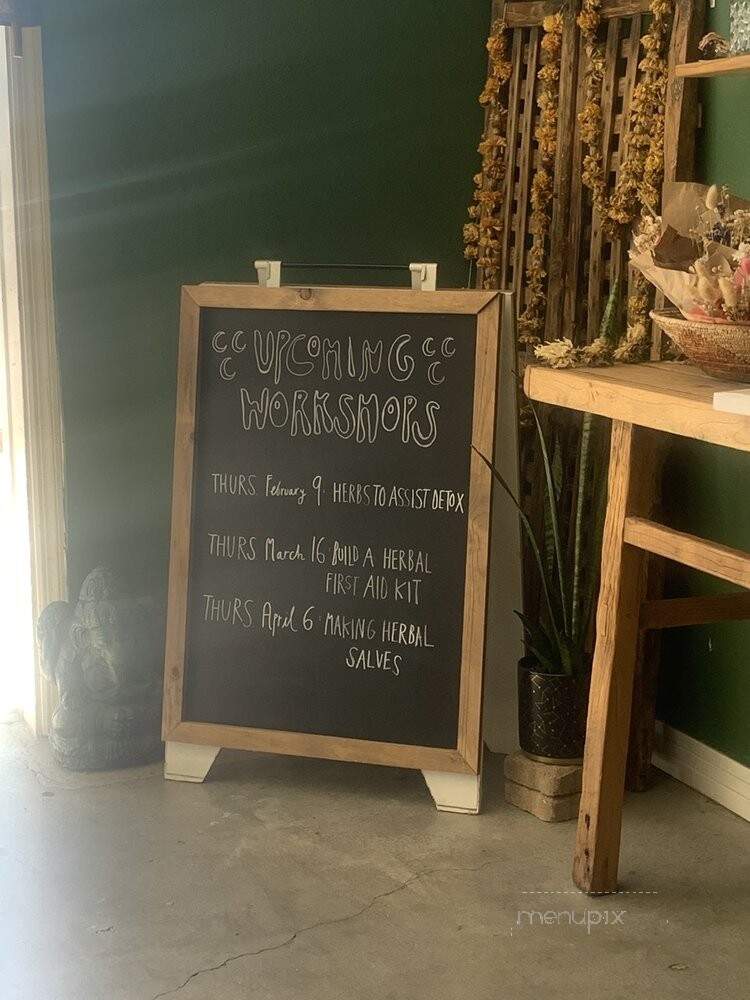 UPCOMING
WORKSHOPS
THURS February 9 · HERBS TO ASSIST DETOX
THURS March 16 · BUILD A HERBAL
FIRST AID KIT
THURS April 6 · MAKING HERBAL
SALVES
menupix